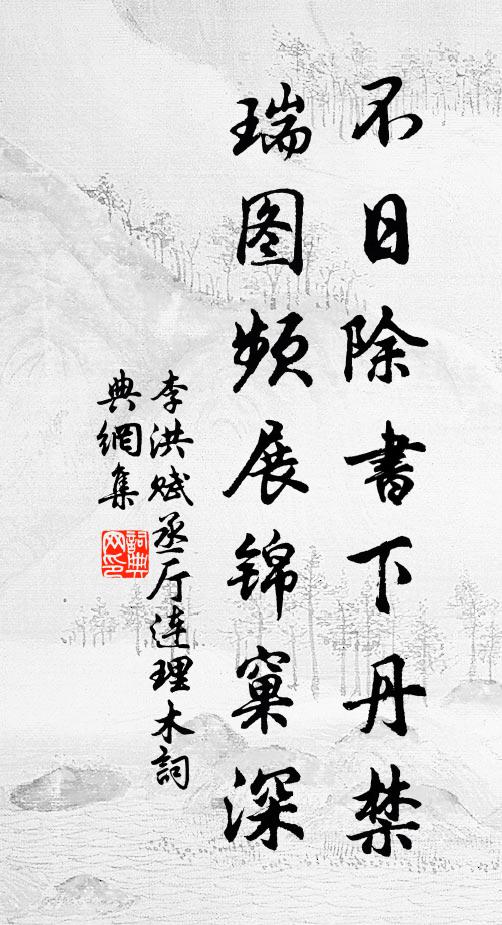 不日除书下丹禁
瑞图频展锦窠深
李洪赋丞厅连理木詞
典網集
詞典网印